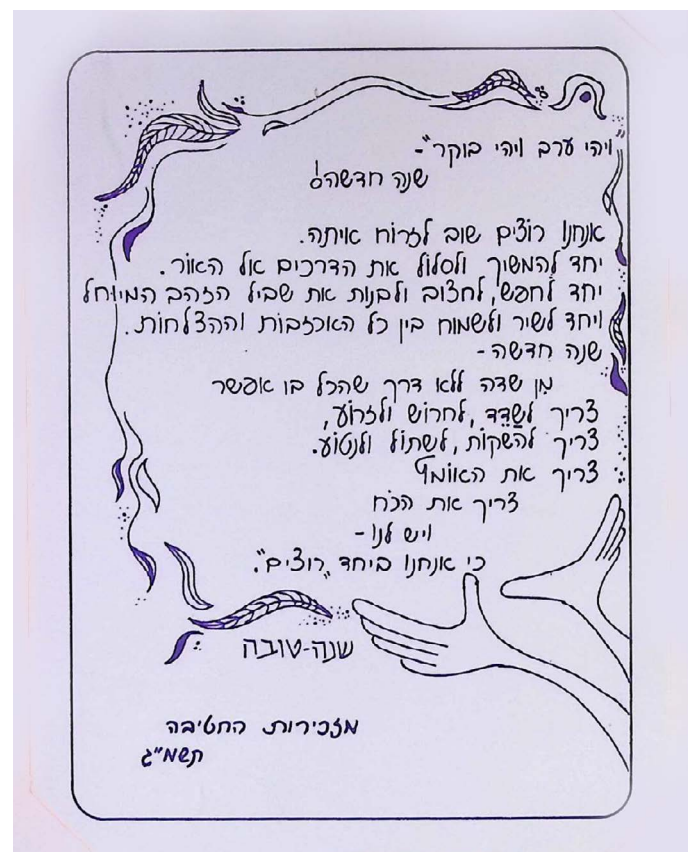 "ויהי ערב ויהי בוקר"-
שנה חדשה!
אנחנו רוֹצים שוב לזרוֹח איתה.
יחד להמשיך ולסלוֹל את הדרכים אל האוֹר.
יחד לחפש, לחצוֹב ולבנות את שביל הזהב המיוּחל
ויחד לשיר ולשמוח בין כל האכזבוֹת וההצלחוֹת.
שנה חדשה-
מן שדה ללא דרך שהכל בו אפשר
צריך לשַׂדֵד, לחרוֹש ולזרוֹע,
צריך להַשקוֹת, לשתוֹל ולנטוֹע.
צריך את האוֹמץ
צריך את הכֹח
ויש לנו-
כי אנחנו ביחד "רוצים".
שנה-טובה
מזכירות החטיבה
תשמ"ג